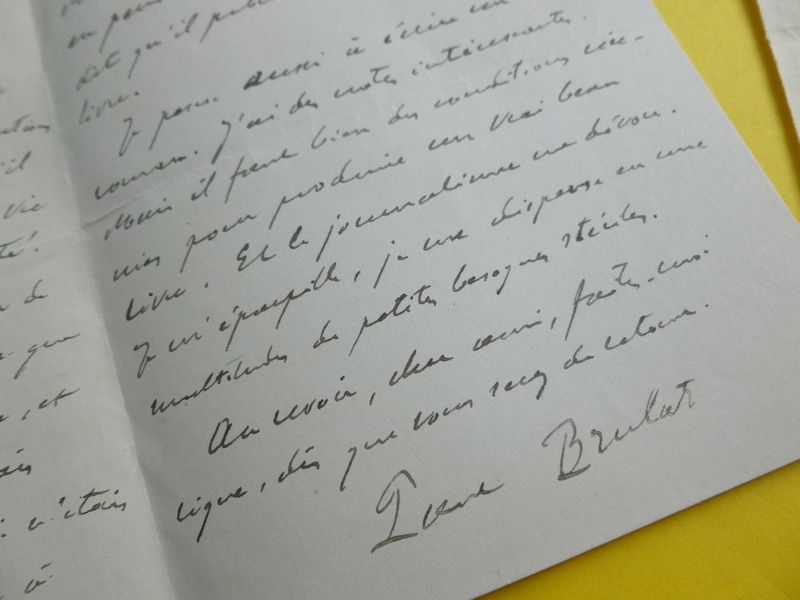 ution
'il
vie
té!
de
que
, et
n'étais
à
dit qu'il
livre.
Je pense aussi à écrire un
roman. J'ai des notes intéressantes.
Mais il faut bien des conditions réu-
nies pour produire un vrai beau
livre. Et le journalisme me dévore.
Je m'éparpille, je me disperse en une
multitude de petites besognes stériles.
Au revoir, cher ami, faites-moi
signe, dès que vous serez de retour.
Paul Brulat